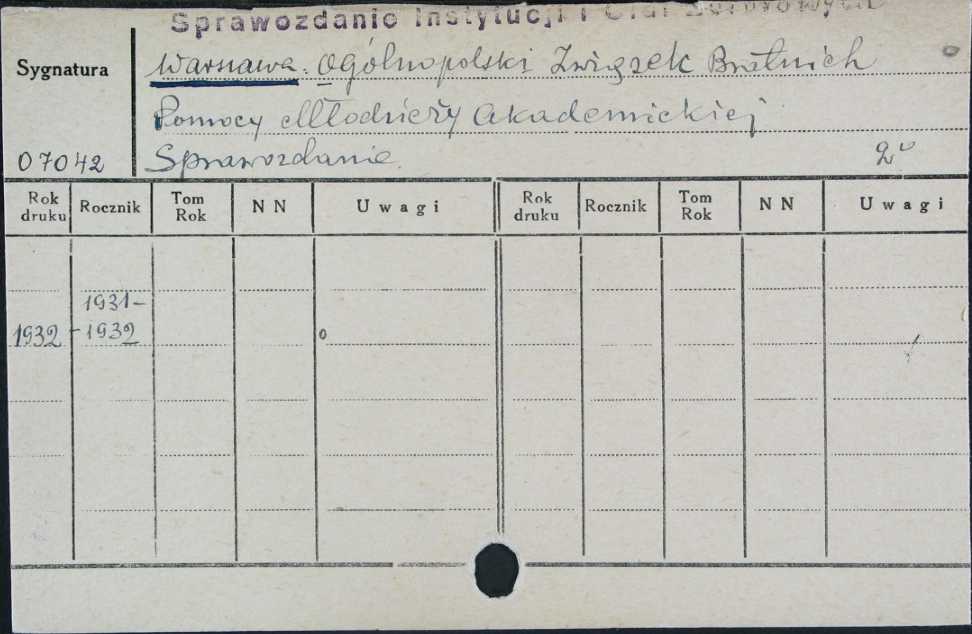 Sprawozdanie Instytucji i Ciał Zbiorowych
Sygnatura
Warszawa. Ogólnopolski Związek Bratnich
Pomocy Młodzieży Akademickiej
07042 Sprawozdanie.
Rok druku Rocznik Tom Rok NN Uwagi Rok druku Rocznik Tom Rok NN Uwagi
1931-
1932 - 1932 o